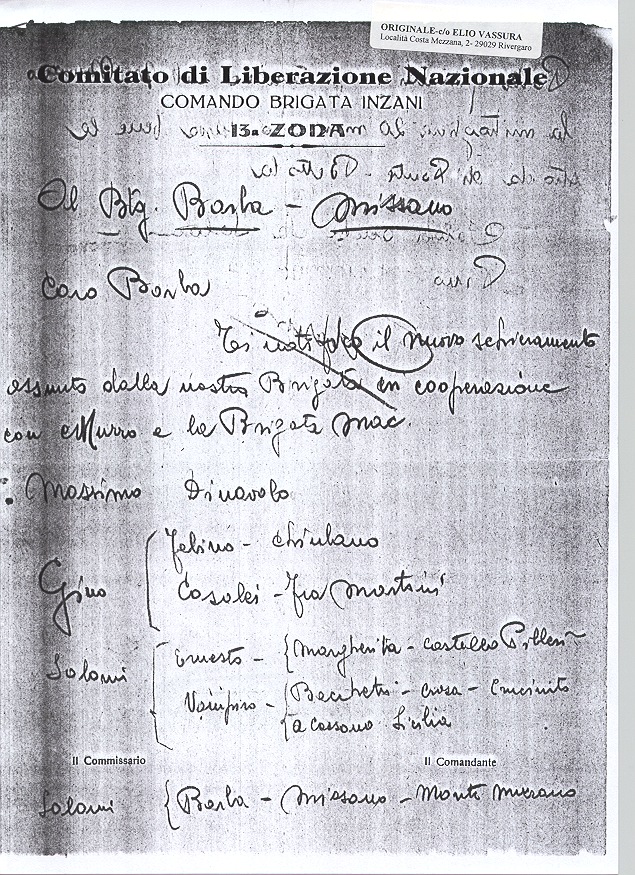 ORIGINALE-c/o ELIO VASSURA
Località Costa Mezzana, 2- 29029 Rivergaro
Comitato di Liberazione Nazionale
COMANDO BRIGATA INZANI
13a ZONA
Al Btg. Barba - Missano
Caro Barba
Ti notifico il nuovo schieramento
assunto dalla nostra Brigata in cooperazione
con Murro e la Brigata Mac.
Massimo Dinavolo
Gino
Felino - Chiulano
Casalei - Fra Martini
Salami
Ernesto - Margherita - Castello
Vampiro - Bacchetti - Crosa -
a Cassano Sicilia
Il Commissario Il Comandante
Salami Barba - Missano - Monte